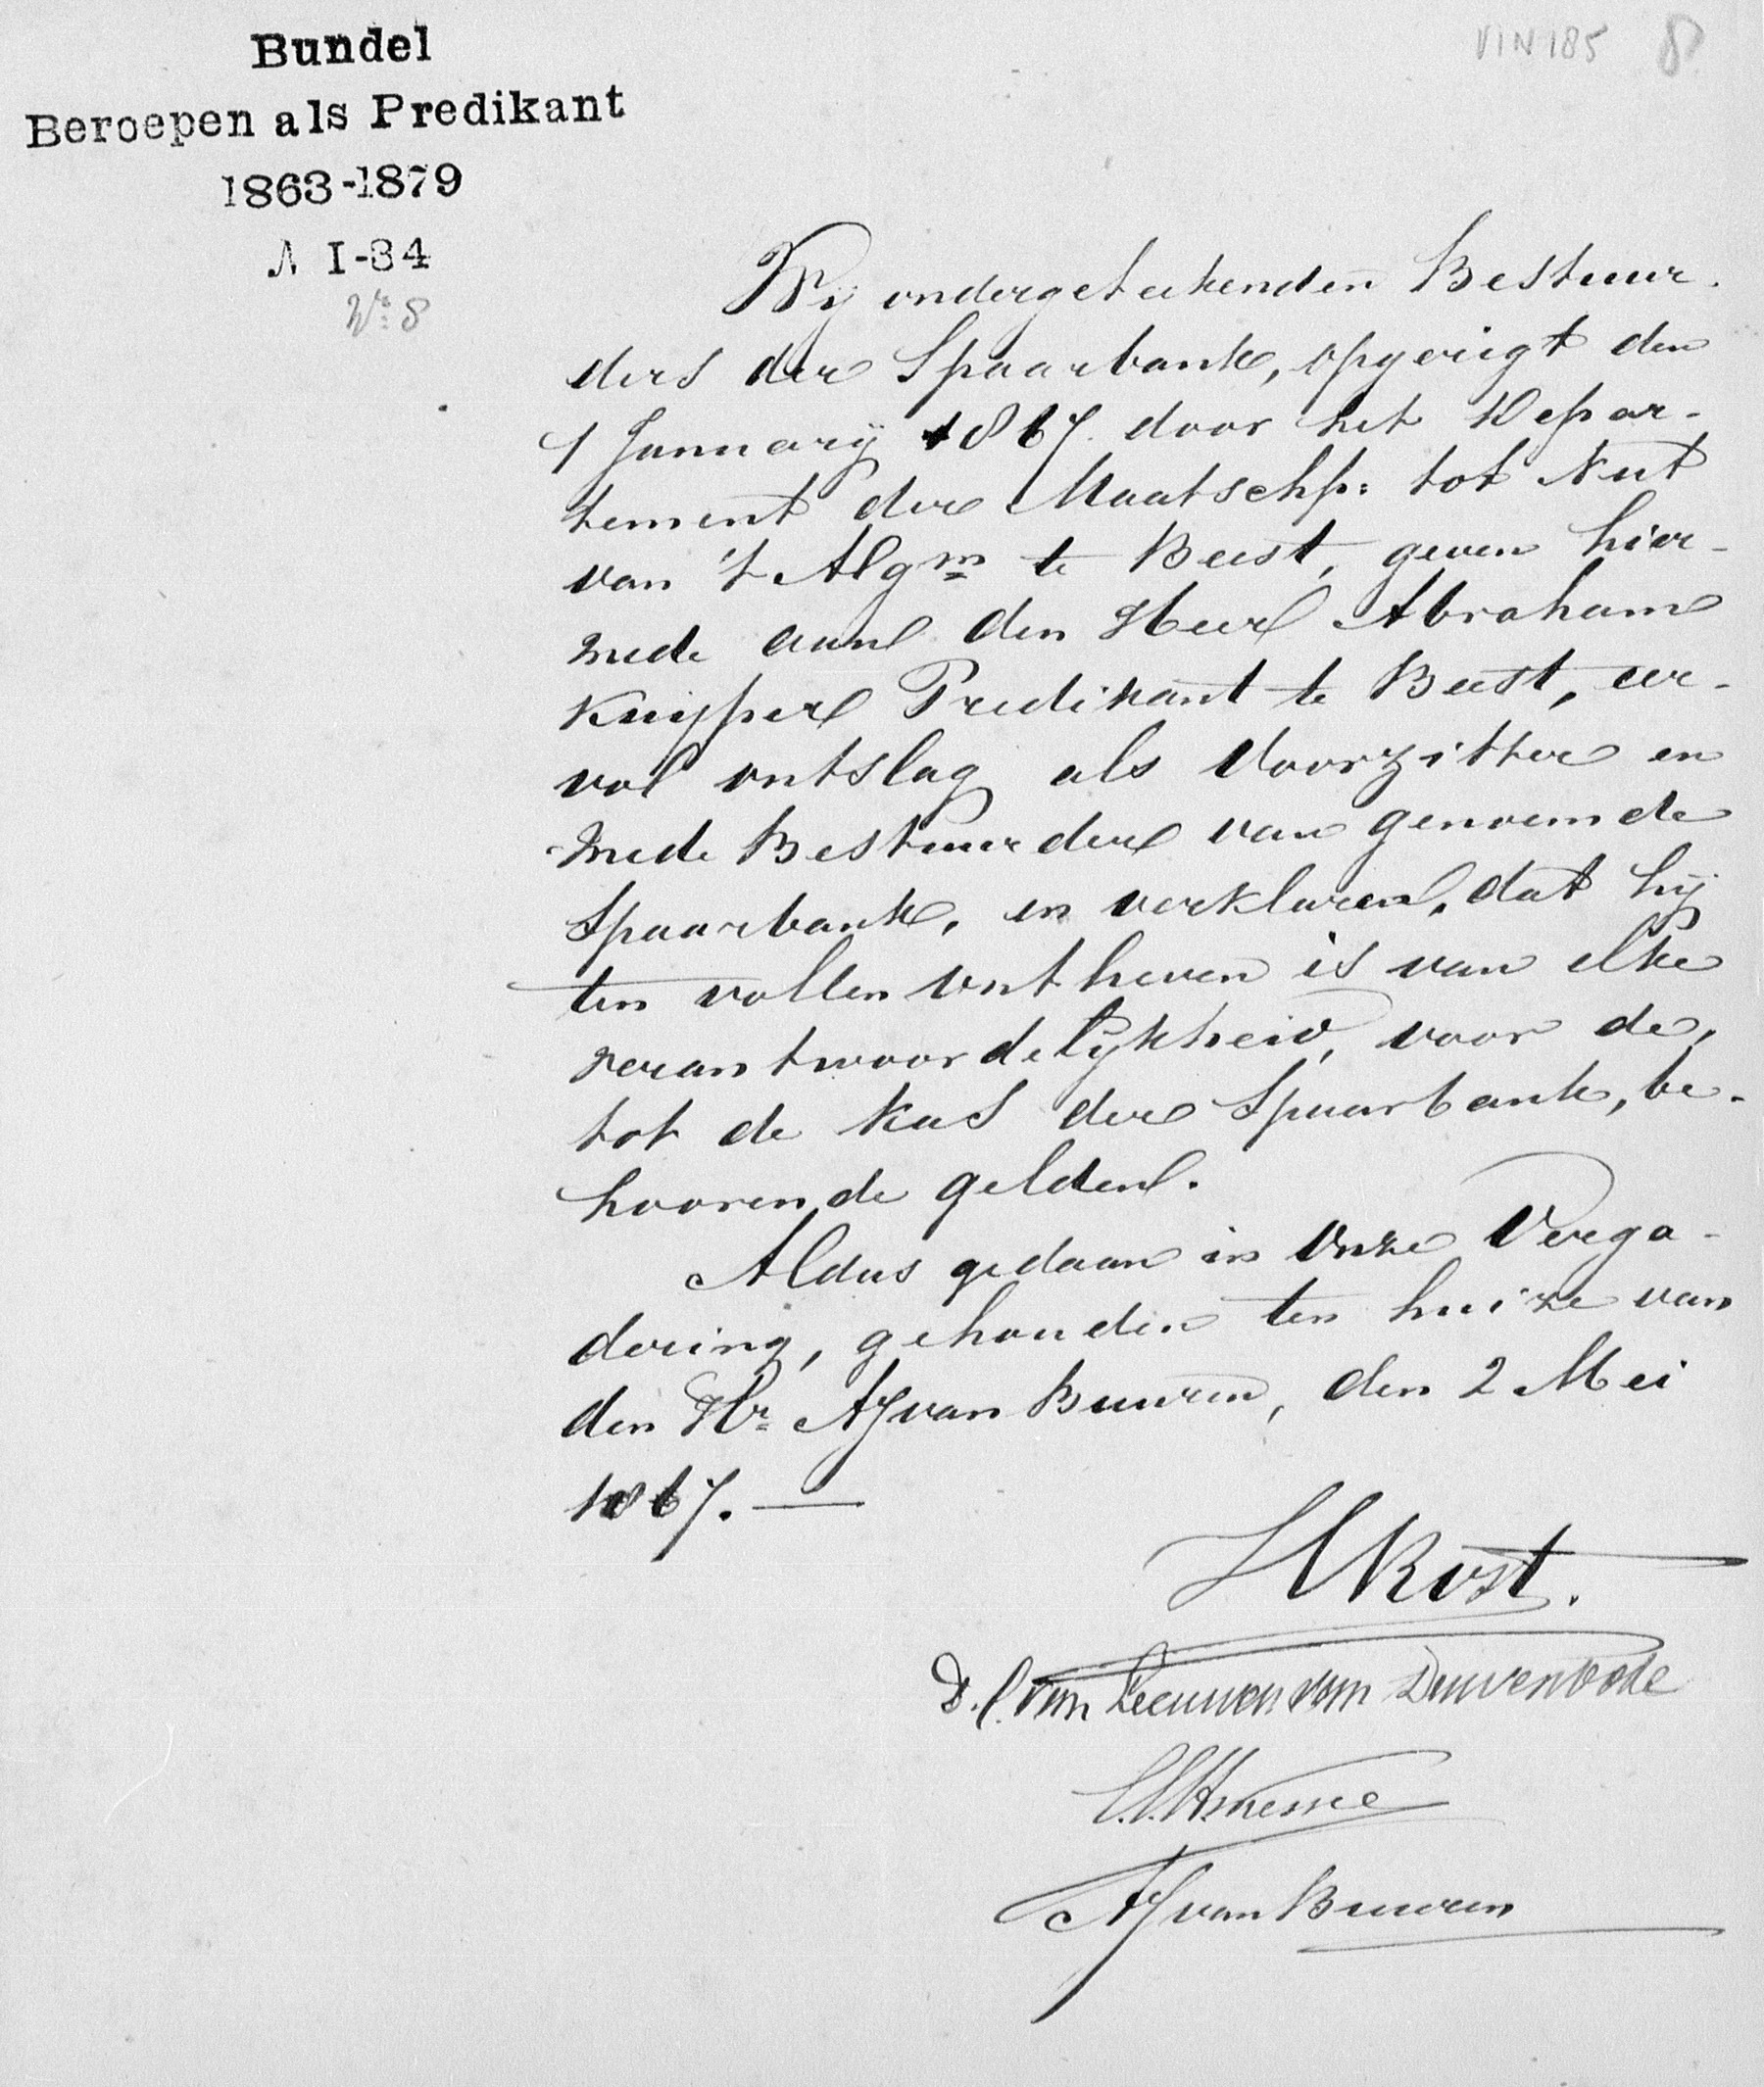 Bundel
Beroepen als Predikant
1863-1879
N I-34
No 8
VIN185 8
Wij ondergeteekenden Bestuur-
ders der Spaarbank, opgerigt den
1 January 1867 door het Depar-
tement der Maatschp: tot Nut
van 't Algm te Beest, geven hier-
mede aan den Heer Abraham
Kuijper Predikant te Beest, eer-
vol ontslag als Voorzitter en
mede Bestuurder van genoemde
Spaarbank, en verklaren, dat hij
ten vollen ontheven is van elke
verantwoordelijkheid, voor de,
tot de kas der Spaarbank, be-
hoorende gelden.
Aldus gedaan in onze Verga-
dering, gehouden ten huize van
den Hr AJ van Buuren, den 2 Mei
1867. —
H Kost.
D. C. van Leeuwen van Duivenbode
AJ van Buuren